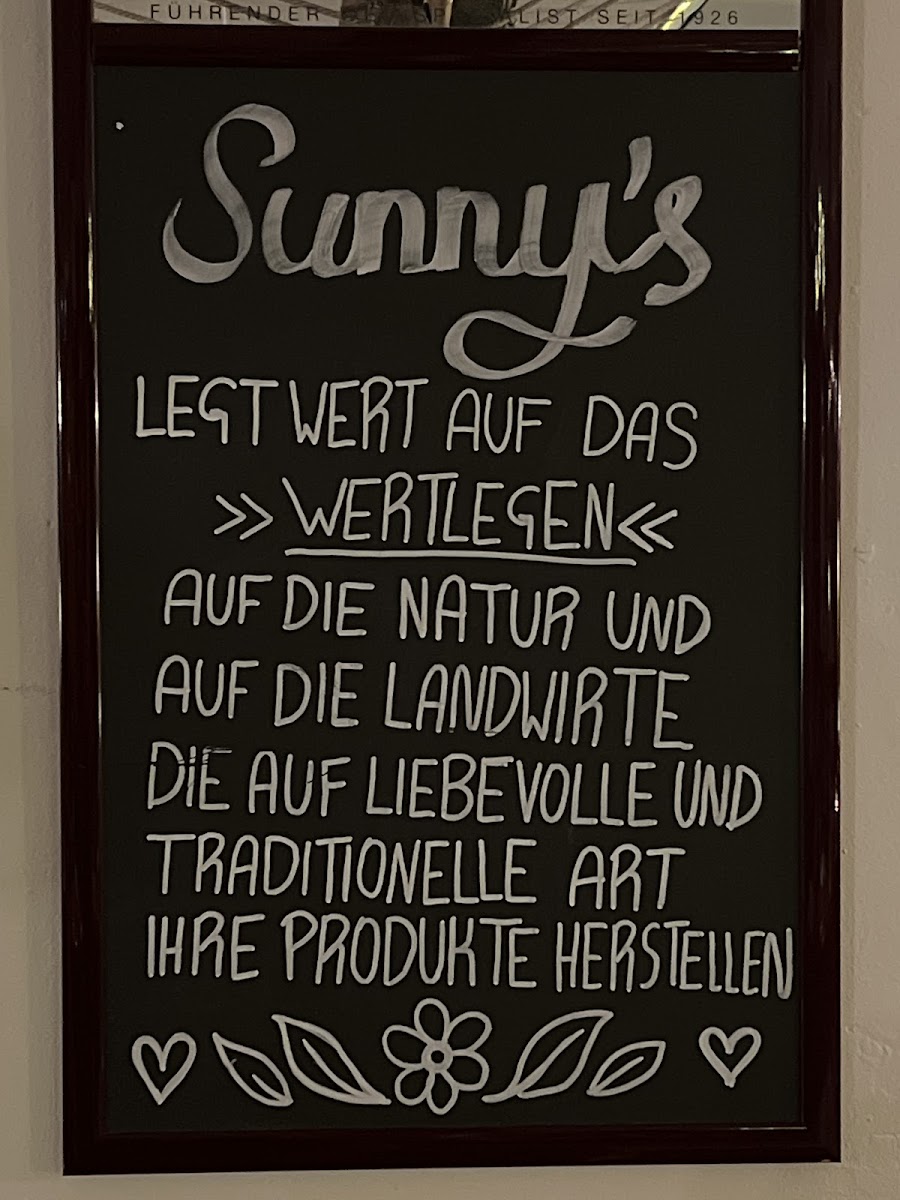 FÜHRENDER IST SEIT 1926
Sunny's
LEGT WERT AUF DAS
»WERTLEGEN«
AUF DIE NATUR UND
AUF DIE LANDWIRTE
DIE AUF LIEBEVOLLE UND
TRADITIONELLE ART
IHRE PRODUKTE HERSTELLEN